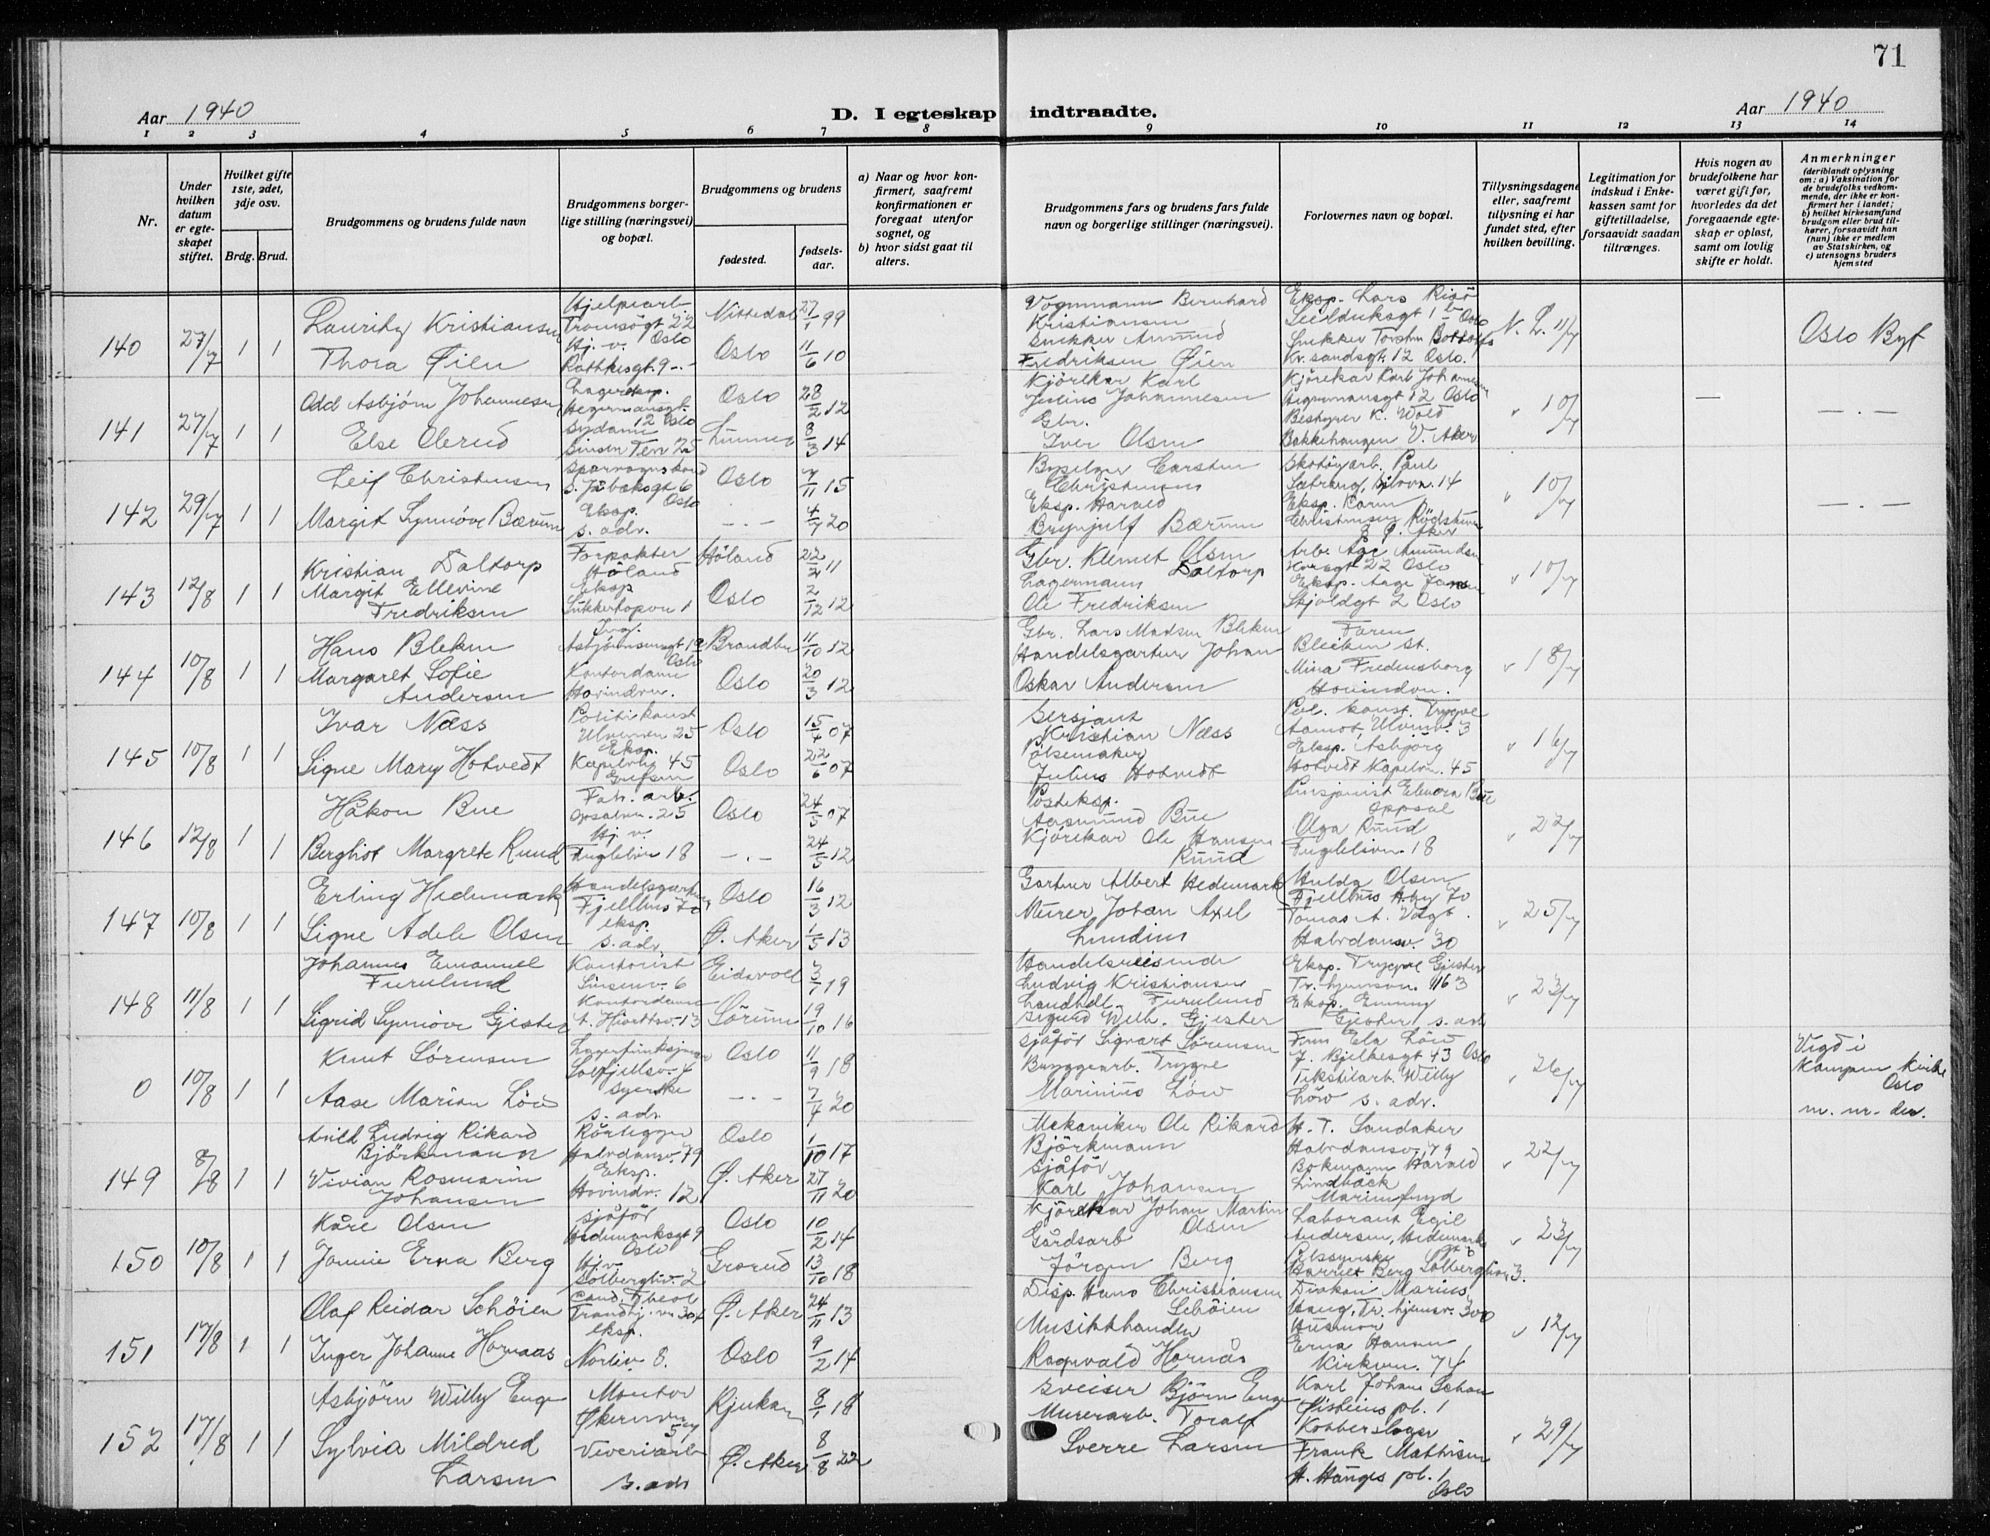 71
Aar 1940
D. I egteskap indtraadte.
Aar 1940
1 2 3 4 5 6 7 8 9 10 11 12 13 14
Nr.
Under hvilken datum er egteskapet stiftet.
Hvilket gifte 1ste, 2det, 3dje osv.
Brdg. Brud.
Brudgommens og brudens fulde navn
Brudgommens borgerlige stilling (næringsvei) og bopæl.
Brudgommens og brudens
fødested.
fødselsaar.
a) Naar og hvor konfirmert, saafremt konfirmationen er foregaat utenfor sognet, og
b) hvor sidst gaat til alters.
Brudgommens fars og brudens fars fulde navn og borgerlige stillinger (næringsvei).
Forlovernes navn og bopæl.
Tillysningsdagene eller, saafremt tillysning ei har fundet sted, efter hvilken bevilling.
Legitimation for indskud i Enkekassen samt for giftetilladelse, forsaavidt saadan tiltrænges.
Hvis nogen av brudefolkene har været gift før, hvorledes da det foregaaende egteskap er opløst, samt om lovlig skifte er holdt.
Anmerkninger
(deriblandt oplysning om: a) Vaksination for de brudefolks vedkommende, der ikke er konfirmert her i landet; b) hvilket kirkesamfund brudgom eller brud tilhører, forsaavidt han (hun) ikke er medlem av Statskirken, og c) utensogns bruders hjemsted
140 27/7 1 1
Kristiansen
Thora Øien
Hjelpearb
Tromsøgt 22
Hj. v. Oslo
Rathkesgt. 9
Nittedal 27/1 99
Oslo 11/6 10
Vognmann Bernhard
Kristiansen
Snekker Amund
Fredriksen Øien
Eksp. Lars
Seilduksgt 1 b Oslo
Snekker
Kr. sandsgt. 12 Oslo.
N. L. 11/7
Oslo Byf
141 27/7 1 1
Odd Asbjørn Johannesen
Else Olerud
Hegermannsgt.
12 Oslo
Sydame
Sinsen Ter 25
Oslo 28/2 12
Lunner 8/3 14
Kjørekar Karl
Julius Johannesen
Gbr.
Iver Olsen
Kjørekar Karl Johannesen
Hegermannsgt 12 Oslo
Bestyrer K. Wold
Bakkehaugen V. Aker
" 10/7
— — . —
142 29/7 1 1
Leif Christensen
Margit Synnøve Bærum
S. Jebeksgt 6
Oslo
Eksp.
s. adr.
Oslo 7/11 15
— . — 4/7 20
Byselger Carsten
Christensen
Eksp. Harald
Brynjulf Bærum
Skotøyarb. Paul
Eksp. Karin
Christensen
Ø. Aker
" 10/7
— . —
143 12/8 1 1
Kristian Daltorp
Margit Ellevine
Fredriksen
Forpakter
Høland
Eksp
Sukkertopvn 1
Høland 22/2 11
Oslo 2/12 12
Gbr. Klemet Olsen
Daltorp
Lagermann
Ole Fredriksen
Arb. Åge Amundsen
22 Oslo
Eksp. Aage Jansen
Skjoldgt 2 Oslo
" 10/7
144 10/8 1 1
Hans Bleken
Margaret Sofie
Andersen
Asbjørnsensgt 12
Oslo
Kontordame
Hovindvn.
Brandbu 11/10 12
Oslo 20/3 12
Gbr. Lars Madsen Bleken
Handelsgartner Johan
Oskar Andersen
Faren
Bleiken st.
Mina Fredensborg
Hovindvn.
" 18/7
145 10/8 1 1
Ivar Næss
Signe Mary Hotvedt
Politikonst
Ulvenvn 25
Eksp.
Kapellvg 45
Grefsen
Oslo 15/4 07
Oslo 22/6 07
Sersjant
Kristian Næss
Pølsemaker
Julius Hotvedt
Pol. konst. Trygve
Aamot, Ulvenv. 3
Eksp. Asbjørg
Hotvedt Kapelvn. 45
" 16/7
146 12/8 1 1
Håkon Bue
Bergliot Margrete Ruud
Fab. arb.
Opsalvn. 25
Hj. v.
Fuglelivn 18
Oslo 24/5 07
— . — 24/5 12
Posteksp.
Aasmund Bue
Kjørekar Ole Hansen
Ruud
Pensjonist Elenora Bue
Oppsal
Olga Ruud
Fuglelivn. 18
" 22/7
147 10/8 1 1
Erling Hedemark
Signe Adele Olsen
Handelsgartner
Fjellhus 70
eksp.
s. adr.
Oslo 16/3 12
Ø. Aker 1/5 13
Gartner Albert Hedemark
Murer Johan Axel
Lundins
Hulda Olsen
Fjellhus Hby 70
Tomas A. Vogt
Halvdansv. 30
" 25/7
148 11/8 1 1
Johannes Emanuel
Furulund
Sigrid Synnøve Gjester
Kontorist
Sinsenv. 6
Kontordame
13
Eidsvoll 3/7 19
Sørum 19/10 16
Handelsreisende
Ludvig Kristiansen
Landhdl. Furulund
Sigurd Wilh. Gjester
Eksp. Trygve Gjester
Tr.hjemsvn. 116 3
Eksp. Emmy
Gjester s. adr
" 23/7
0 10/8 1 1
Knut Sørensen
Aase Marion Löw
Solfjellsv. 4
Syerske
s. adr.
Oslo 11/9 18
— . — 7/4 20
Sjåfør Sigvart Sørensen
Byggearb. Trygve
Marinius Löw
Fru Ela Löw
J. Bjelkesgt 43 Oslo
Tekstilarb. Willy
Löw s. adr.
" 26/7
Vigd i
Kampen kirke
Oslo
m. nr. der.
149 8/8 1 1
Arild Ludvig Rikard
Björkmann
Vivian Rosmarin
Johansen
Rørlegger
Halvdansv. 79
Eksp.
Hovindv. 12
Oslo 1/10 17
Ø. Aker 27/11 20
Mekaniker Ole Rikard
Björkmann
Sjåfør
Karl Johansen
H. T. Sandaker
Halvdansv. 79
Bokmann Harald
Lindbäck
Marienfryd
" 22/7
150 10/8 1 1
Kåre Olsen
Jonnie Erna Berg
Sjåfør
Hedemarksgt 9
Oslo
Hjv.
Solbergliv. 2
Oslo 10/2 14
Grorud 13/10 18
Kjørekar Johan Martin
Olsen
Gårdsarb
Jørgen Berg
Laborant Egil
Andersen, Hedemarks
Pelssyerske
Harriet Berg Solbergliv. 3.
" 23/7
151 17/8 1 1
Olaf Reidar Schøien
Inger Johanne Hornaas
Cand. Theol
Trondhj. vn 30
eksp.
Norliv. 8.
Ø. Aker 24/11 13
Oslo 9/2 14
Disp. Hans Christiansen
Schøien
Musikkhandler
Ragnvald Hornås
Diakon Marius
Haug, Tr. hjemsv. 300
Husmor
Erna Hansen
Kirkevn. 74
" 12/7
152 17/8 1 1
Asbjørn Willy Enge
Sylvia Mildred
Larsen
Montør
Økernveg
Veveriarb
s. adr
Rjukan 8/1 18
Ø. Aker 8/8 22
Sveiser Bjørn Enge
Murerarb. Toralf
Sverre Larsen
Karl Johan
pl. 1
Kobberslager
Frank Mathisen
H. Hauges pl. 1
Oslo
" 29/7